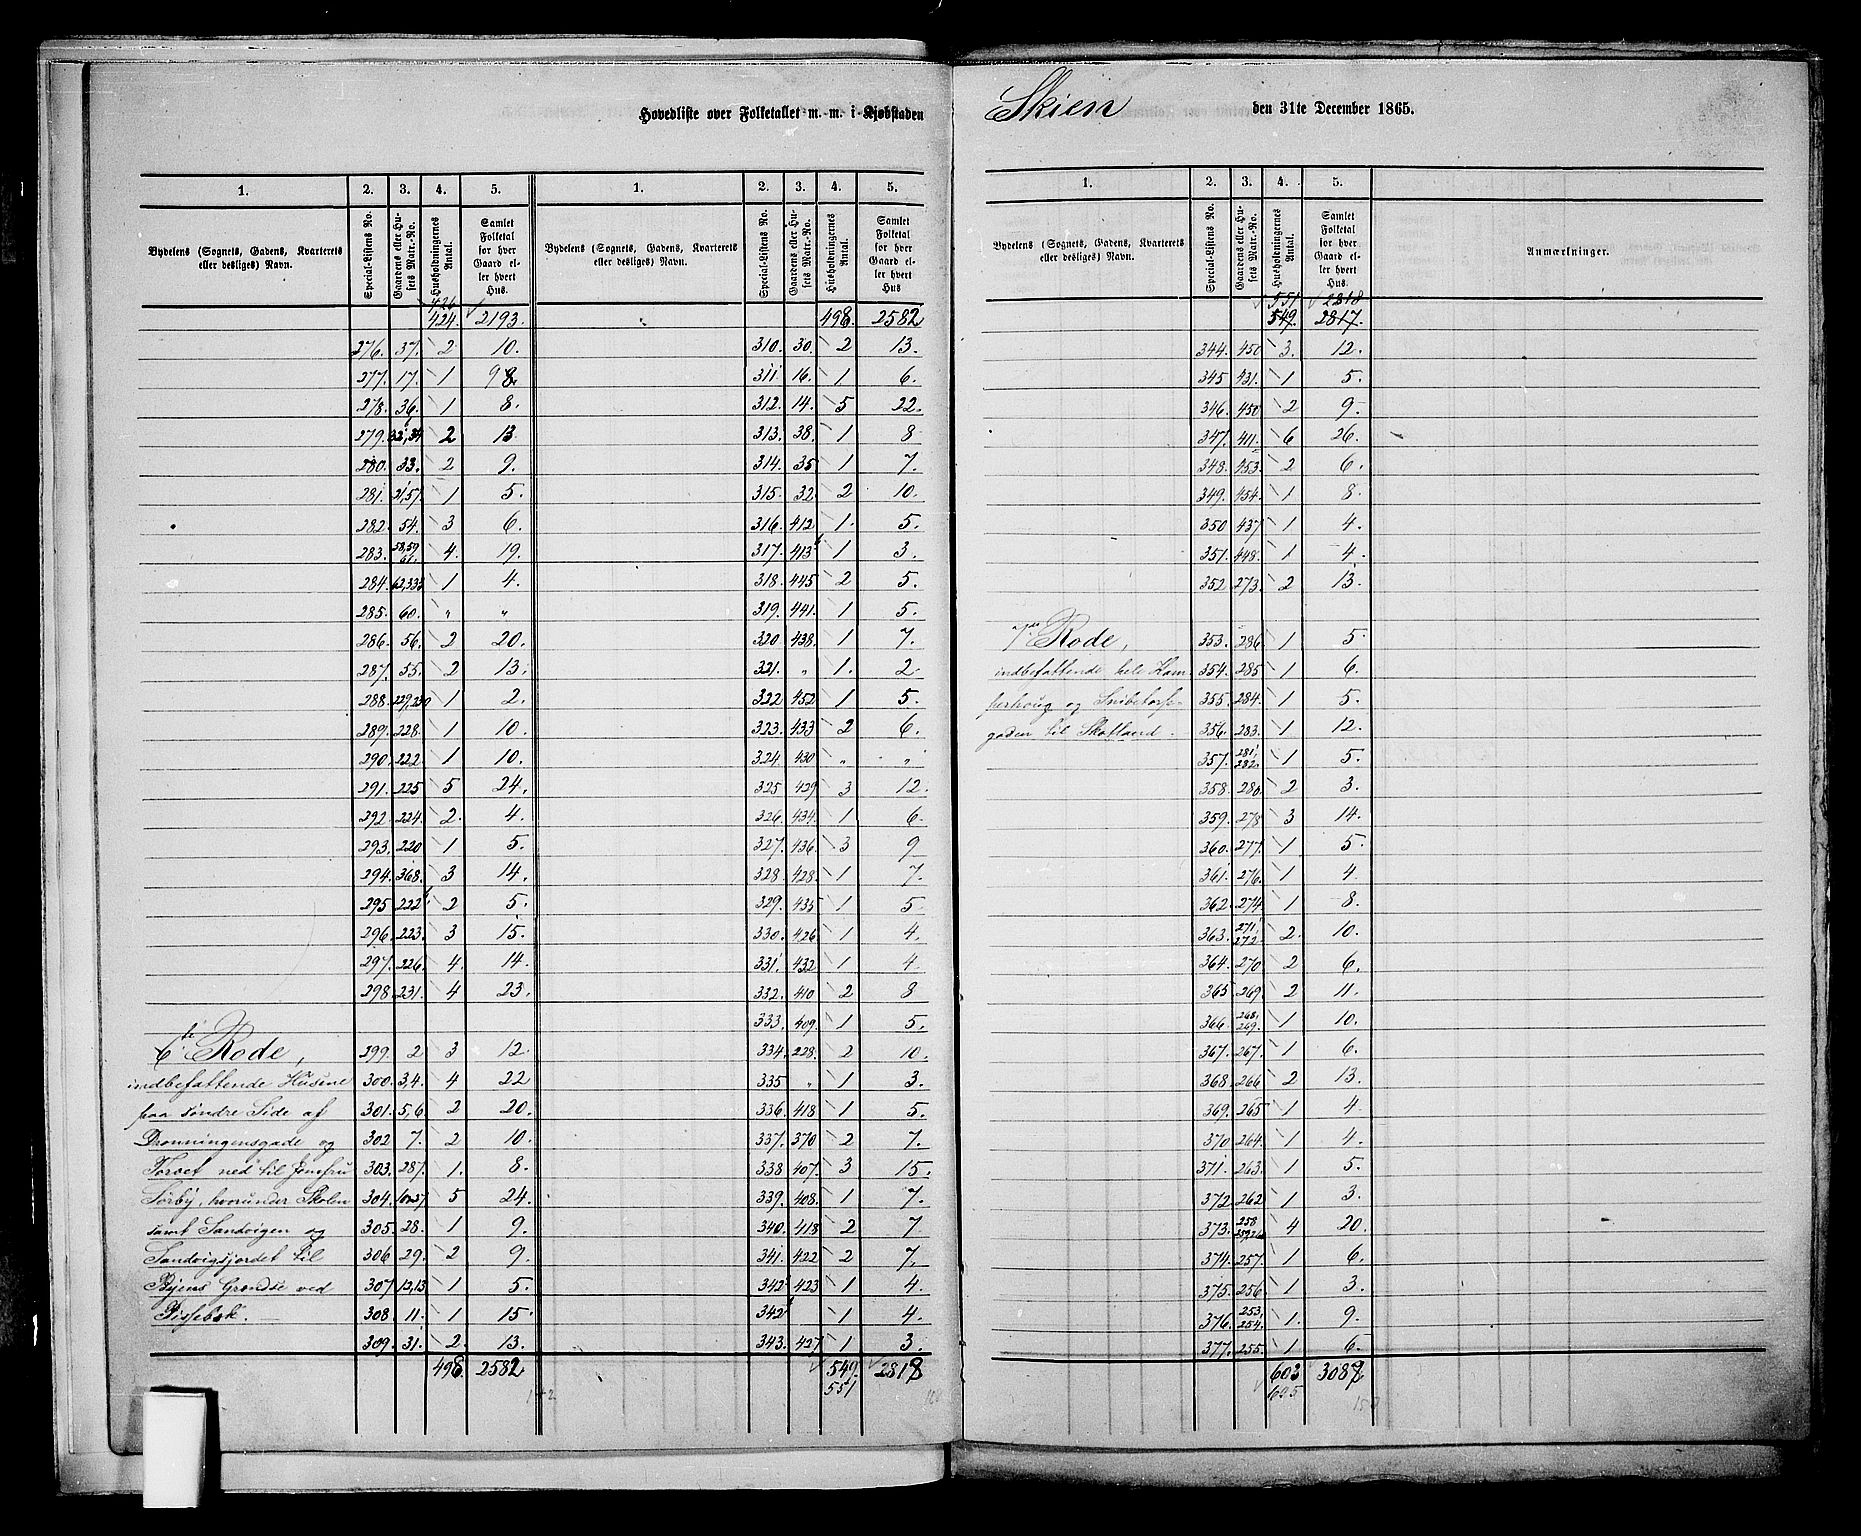 Hovedliste over Folketallet m. m. i Kjøbstaden Skien den 31te December 1865.
1. 2. 3. 4. 5. 1. 2. 3. 4. 5.
Bydelens (Sognets, Gadens, Kvarterets eller desliges) Navn. Special-Listens No. Gaardens eller Husets Matr.-No. Husholdningernes Antal. Samlet Folketal for hver Gaard eller hvert Hus. Bydelens (Sognets, Gadens, Kvarterets eller desliges) Navn. Special-Listens No. Gaardens eller Husets Matr.-No. Husholdningernes Antal. Samlet Folketal for hver Gaard eller hvert Hus
426
424. 2193.
276. 37. 2 10.
277. 17. 1 98.
278. 36. 1 8.
279. 32, 34 2 13
280. 33. 2 9.
281. 21,57. 1 5.
282. 54. 3 6.
283. 58,59 61. 4. 19.
284. 62,333 1 4.
285. 60. " "
286. 56. 2 20.
287. 55. 2 13.
288. 229,230 1 2.
289. 228. 1 10.
290. 222. 1 10.
291. 225 5 24.
292. 224. 2. 4.
293. 220 1 5.
294. 368. 3 14.
295 222b 2 5.
296. 223. 3 15.
297. 226. 4. 14.
298. 231. 4 23.
6te Rode, 299. 2 3 12.
indbefattende Husene 300. 3,4. 4 22
paa søndre Side af 301. 5,6. 2 20.
Dronningensgade og 302 7. 2 10.
Torvet ned til Jomfru 303. 287. 1. 8.
Sørby, hvorunder Skolen 304. 5 24.
samt Sandvigen og 305. 28. 1 9.
Sandvigsjordet til 306 29. 2 9.
Byens Grændse ved 307 12,13 1 5.
308. 11. 1 15.
309. 31. 2. 13.
498. 2582
498. 2582
310. 30. 2 13.
311. 16. 1 6.
312. 14. 5 22.
313. 38. 1 8
314. 35 1 7.
315. 32. 2 10.
316. 412 1. 5.
317. 413b 1 3.
318. 445 2 5.
319. 441. 1 5.
320 438. 1 7.
321. " 1. 2.
322 452 1 5.
323. 433 2 6.
324. 430 " "
325 429 3 12.
326. 434. 1 6.
327. 436. 3 9
328. 428. 1 7.
329. 435 1 5.
330. 426 1 4.
331. 432 1 4.
332. 410 2 8
333. 409. 1 5.
334. 228. 2 10.
335 " 1 3.
336. 418 1 5.
337. 370 2 7.
338 407. 3 15.
339. 408. 1 7.
340. 418 2 7
341. 422 2 7.
342a 423 1 4.
342b 1 4.
343. 427 1 3.
549. 2818
551
1. 2. 3. 4. 5.
Bydelens (Sognets, Gadens, Kvarterets eller desliges) Navn. Special-Listens No. Gaardens eller Husets Matr.-No. Husholdningernes Antal. Samlet Folketal for hver Gaard eller hvert Hus Anmærkninger.
551 2818
549. 2817.
344. 450 3. 12.
345 431. 1 5.
346. 450 2 9.
347. 411. 6 26.
348. 453. 2 6.
349. 454. 1 8.
350 437 1 4.
351. 448. 1 4.
352 273. 2 13.
7de Rode, 353. 286 1 5
indbefattende hele Kam 354. 285 1 6.
perhoug og Snibetorp 355. 284. 1 5.
gaden til Skotland. 356. 283. 1 12.
357. 281, 282. 1 5.
358. 280. 2 3.
359. 278 3 14.
360. 277. 1 5.
361. 276. 1 4
362. 274. 1 8.
363. 271, 272. 2. 10.
364. 270 2 6.
365 269. 2 11.
366 268, 269. 1 10.
367. 267. 1 6.
368. 266 2 13.
369. 265 1 4.
370 264. 1 4.
371. 263. 1 5.
372. 262 1 3.
373. 258 4 20.
374. 257. 1 6.
375. 256 1 3.
376. 253, 254. 1. 9.
377. 255. 1 6.
603 3087